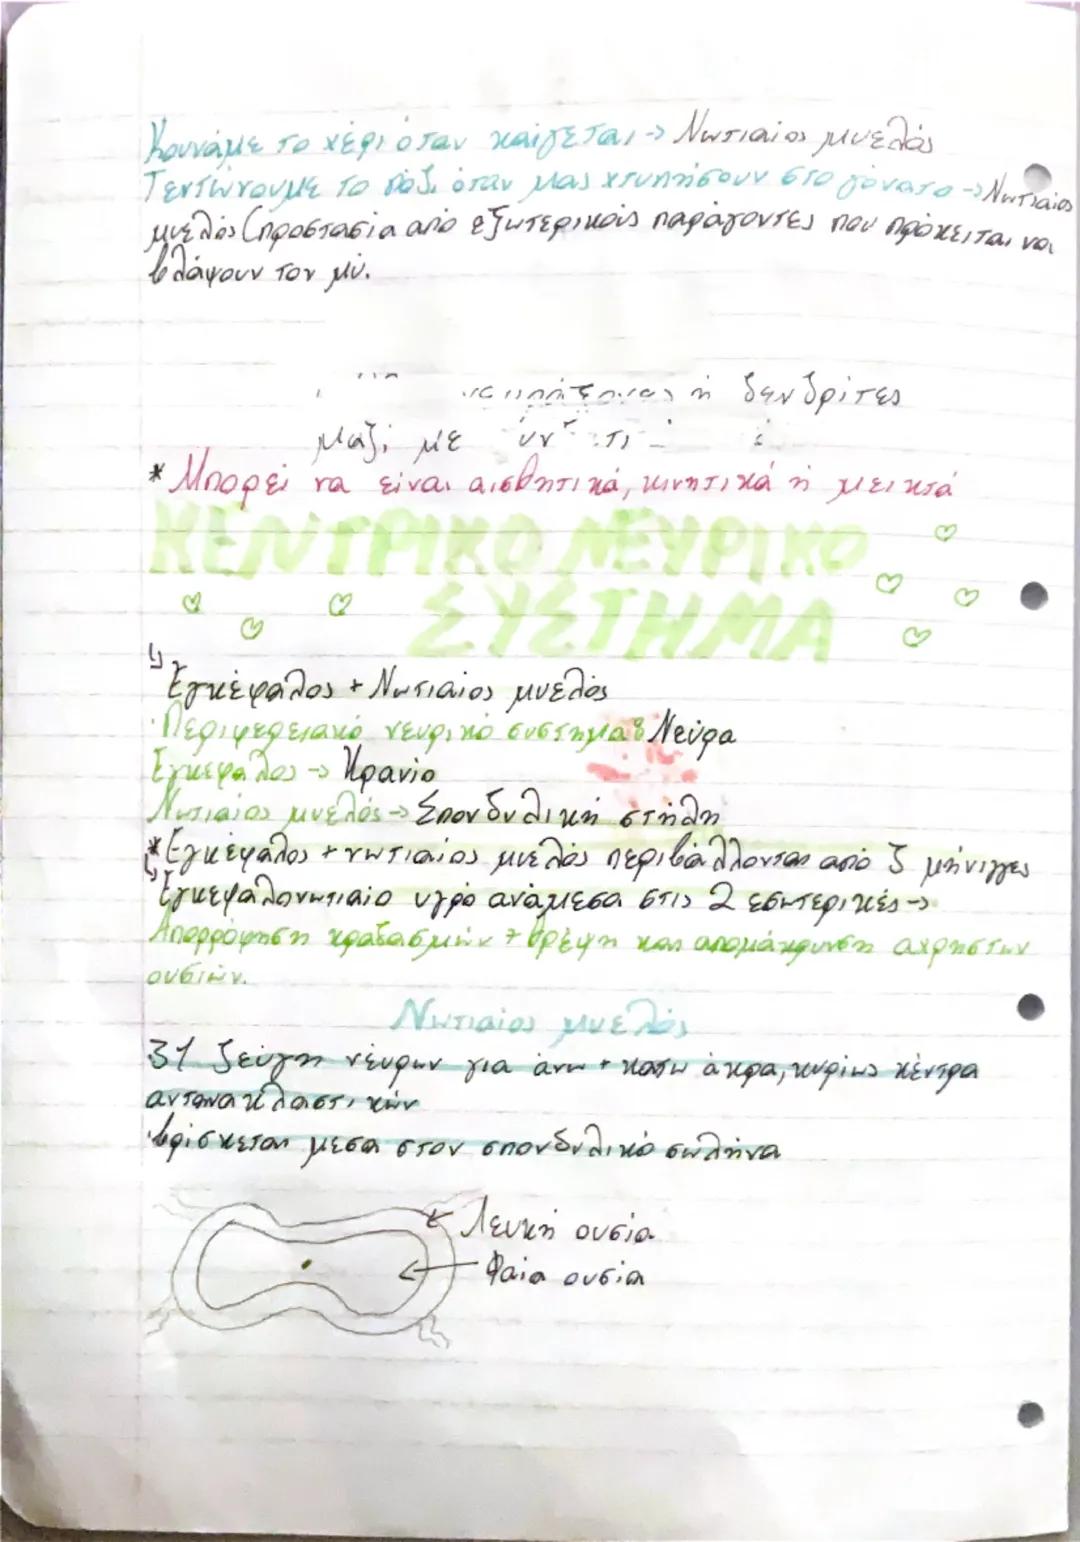 Κουνάμε το χέρι όταν καίγεται -> Νωτιαίος μυελός
Τεντώνουμε το πόδι όταν μας χτυπήσουν στο γόνατο -> Νωτιαίος
μυελός (προστασία από εξωτερικούς παράγοντες που πρόκειται να
βλάψουν τον μυ.
ή δενδρίτες
μαζί με
* Μπορεί να είναι αισθητικά, κινητικά ή μεικτά
ΚΕΝΤΡΙΚΟ ΝΕΥΡΙΚΟ
ΣΥΣΤΗΜΑ
↳ Εγκέφαλος + Νωτιαίος μυελός
· Περιφερειακό νευρικό σύστημα: Νεύρα
Εγκέφαλος -> Κρανίο
Νωτιαίος μυελός -> Σπονδυλική στήλη
* Εγκέφαλος + νωτιαίος μυελός περιβάλλονται από 3 μήνιγγες
↳ Εγκεφαλονωτιαίο υγρό ανάμεσα στις 2 εσωτερικές ->
Απορρόφηση κραδασμών + θρέψη και απομάκρυνση αχρηστων
ουσιών.
Νωτιαίος μυελός
31 ζεύγη νεύρων για άνω + κατω άκρα, κυρίως κέντρα
αντανακλαστικών
· βρίσκεται μεσα στον σπονδυλικό σωλήνα
Λευκή ουσία
Φαία ουσία